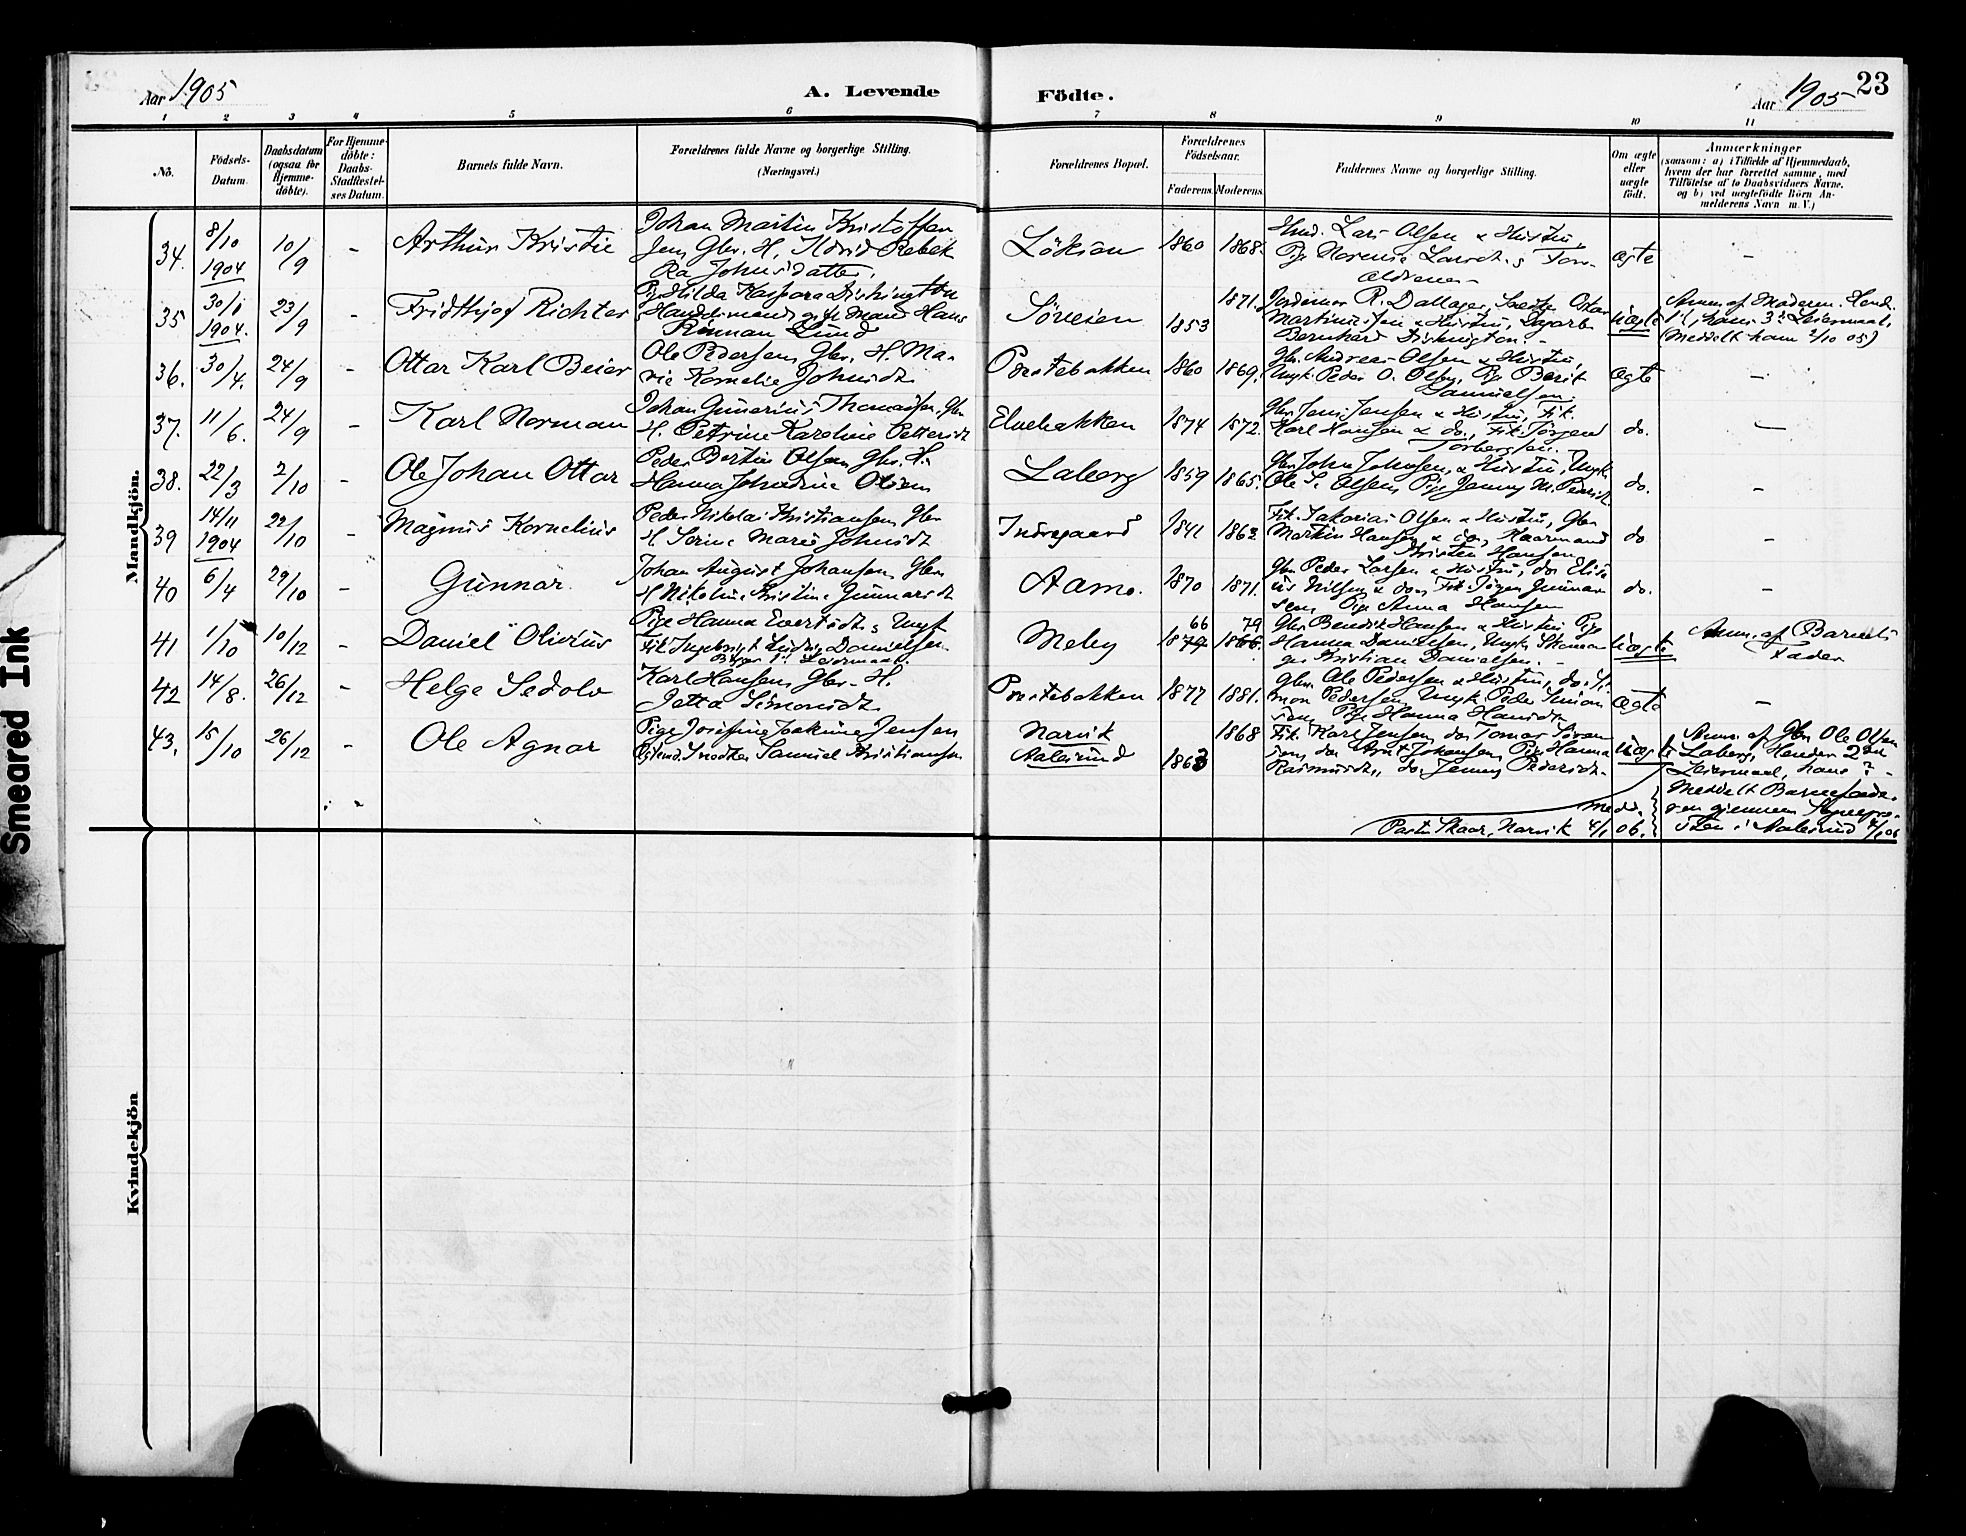 Aar 1905
A. Levende Födte.
Aar 1905
23
1 2 3 4 5 6 7 8 9 10 11
No.
Födsels-Datum.
Daabsdatum (ogsaa for Hjemmedöbte).
For Hjemmedöbte: Daabs-Stadfestelses Datum.
Barnets fulde Navn.
Forældrenes fulde Navne og borgerlige Stilling. (Næringsvei.)
Forældrenes Bopæl.
Forældrenes Födselsaar.
Faderens. Moderens.
Faddernes Navne og borgerlige Stilling.
Om ægte eller uægte födt.
Anmærkninger
(saasom: a) i Tilfælde af Hjemmedaab, hvem der har forrettet samme, med Tilföielse af to Daabsvidners Navne. og b) ved uægtefödte Börn Anmelderens Navn m. V.)
Mandkjön.
34. 8/10 1904 10/9 - Arthur Kristie
Johan Martin Kristoffer
Jens Gbr. H.
Johnsdatter.
1860 1868.
Lars Olsen & Hustru,
ægte -
35 1904. 23/9 - Fridthjof Richter
Pige Hilda Kaspara Dishington
Handelsmand, gift Mand Hans
Rinman Lund
Søveien 1853 1871.
Jordemor R.
Martinussen & Hustru, Dagarb.
Bernhard Dishington. -
uægte
Anm. af Moderen. Hend.
1st, hans 3die Leiermaal,
(Meddelt ham 2/10 05)
36. 30/4. 24/9 - Ottar Karl Beier
Ole Pedersen, Gbr. H. Ma-
rie Kornelie Johnsdt.
Prestebakken 1860 1869.
Gbr. Andreas Olsen & Hustru,
Ungk. Peder O. Olsen, Pige Berit
Samuelsen.
ægte -
37. 11/6. 24/9 - Karl Norman
Johan Gunerius Thomassen, Gbr
H. Petrine Karoline Pettersdt
Elvebakken 1874 1872.
Gbr. Jens Jensen & Hustru, Fit.
Karl Hansen & do., Fit. Jørgen
Torbergsen.
do. -
38. 22/3 2/10 - Ole Johan Ottar
Peder Bertin Olsen, Gbr. H.
Hanna
Laberg 1859 1865.
Gbr. John Johnsen, & Hustru, Ungk
Ole S. Olsen, Pige Jenny M. Pedersdt.
do. -
39 14/11 1904 22/10 - Magnus Kornelius
Peder Nikolai Kristiansen, Gbr
H. Serine Marie Johnsdt.
Indregaard 1841 1862
Fit. Sakarias Olsen & Hustru, Gbr
Martin Hansen & do, Kaarmand
Kristen Hansen
do -
40 6/4 29/10 - Gunnar.
Johan August Johansen, Gbr
H. Nikoline Kristine Gunnarsdt
Aamo. 1870 1871.
Gbr. Peder Larsen & Hustru, do. Elise-
us Nilsen & do, Fit. Jørgen Gunnar
sen, Pige Anna Hansen
do. -
41 1/10 10/12 - Daniel Olivius
Pige Hanna Evertsdt., Ungk
Fit. Ingebrigt Ludvig Danielsen
Begges 1st Leiermaal.
Meby 66 1879 79 1866.
Gbr. Bendik Hansen & Hustru Pige
Hanna Danielsen, Ungk.
Kristian Danielsen. -
uægte
Anm. af Barnets
Fader
42 14/8. 26/12 - Helge Sedolv
Karl Hansen, Gbr. H.
Jetta Simonsdt.
Prestebakken 1877 1881.
Gbr. Ole Pedersen & Hustru, do. Si-
mon Pedersen, Ungk. Peder Simon
sen, Pige Hanna Hansdt.
ægte -
43. 15/10 26/12 - Ole Agnar
Pige Josefine Joakime Jensen
Samuel Kristiansen
Narvik
Aalesund 1863 1868
Fit. Karl Jensen, do. Tomas Søren
sen, do. Arnt Johansen, Pige Hanna
Rasmusdt., do. Jenny Pedersdt.
uægte
Anm. af Gbr. Ole Olsen
Laberg, Hendes 2det
Leiermaal, hans ? -
Meddelt Barnefade-
ren gjennem Sognepre-
sten i Aalesund 4/1 06
medd.
Pastor Skaar, Narvik 4/1 06.
Kvindekjön
Smeared Ink